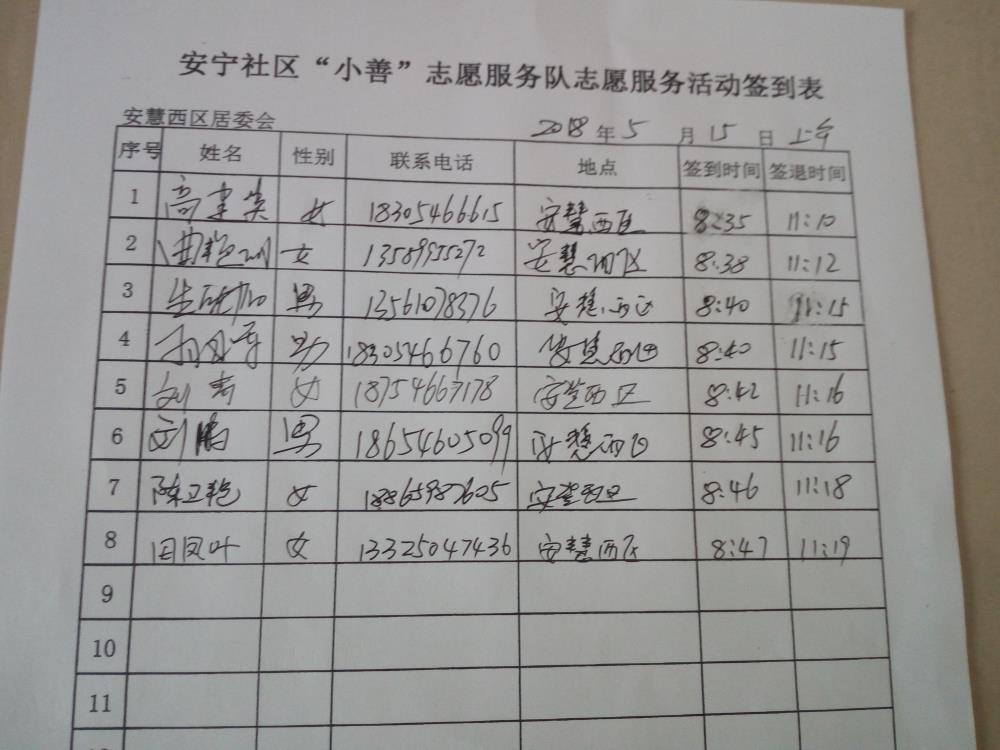 安宁社区“小善”志愿服务队志愿服务活动签到表
安慧西区居委会 2018年5月15日 上午
序号 姓名 性别 联系电话 地点 签到时间 签退时间
1 高 女 18305466615 安慧西区 8:35 11:10
2 女 13589955272 安慧西区 8:38 11:12
3 男 13561078376 安慧西区 8:40 11:15
4 男 18305466760 安慧西区 8:40 11:15
5 刘 女 18754667178 安慧西区 8:42 11:16
6 刘 男 18654605099 安慧西区 8:45 11:16
7 陈卫艳 女 18865987605 安慧西区 8:46 11:18
8 田凤叶 女 13325047436 安慧西区 8:47 11:19
9
10
11